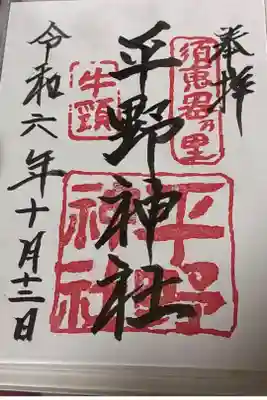 奉拝
須恵器乃里
平野神社
平野神社
牛頸
令和六年十月十三日